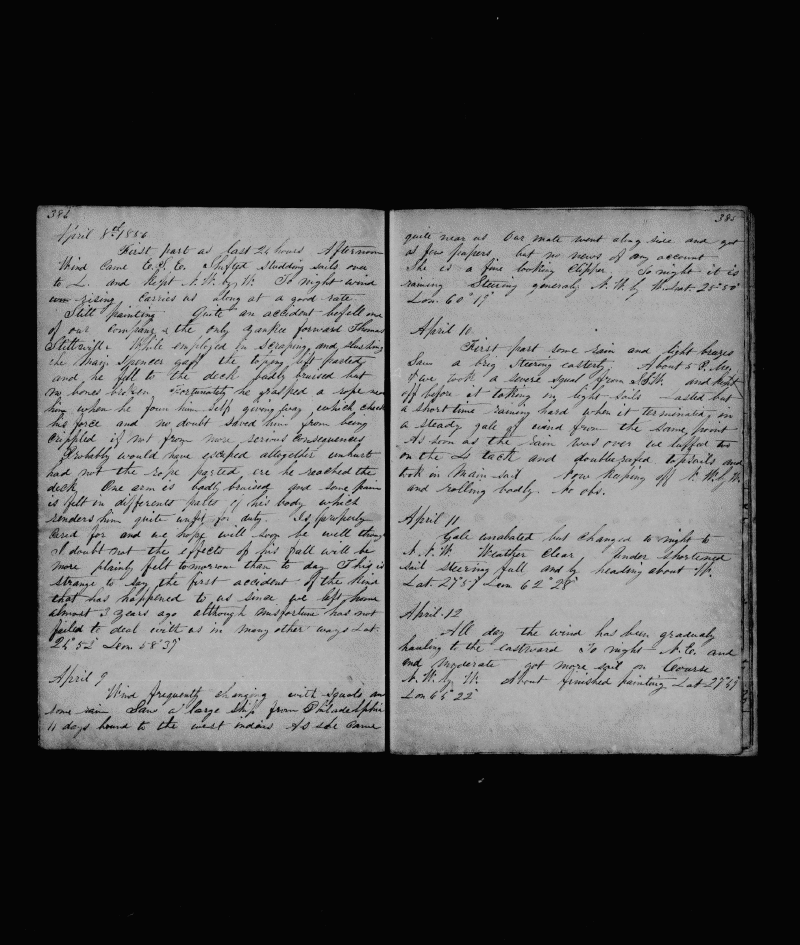 384
April 8th 1856
First part as last 24 hours Afternoon
Wind Came E.S.E. Shifted Studding sails over
to L. and Kept N.W. by W. To night wind
rising carries us along at a good rate
Still painting Quite an accident befell one
of our Company & the only Yankee forward Thomas
While employed in Scraping and slushing
the Main Spencer gaff the toping lift parted
and he fell to the deck badly bruised but
no bones broken Fortunately he grasped a rope near
him when he foun him self giving way which check
his force and no doubt saved him from being
crippled if not from more serious consequences
Probably would have escaped altogether unhurt
had not the rope parted ere he reached the
deck One arm is badly bruised and some pain
is felt in different parts of his body which
renders him quite unfit for duty. Is properly
cared for and we hope will soon be well though
I doubt not the effects of his fall will be
more plainly felt tomorrow than to day This is
strange to say the first accident of the kind
that has happened to us since we left home
almost 3 years ago although misfortune has not
failed to deal with us in many other ways Lat.
24°52' Lon. 58°39'
April 9
Wind frequently changing with squals an
some rain Saw a large Ship from Philadelphia
11 days bound to the west indies As she came
385
quite near us Our mate went along side and got
a few papers but no news of any account
She is a fine looking Clipper. To night it is
raining Steering generaly N.W. by W. Lat. 25°50'
Lon. 60°19'
April 10
First part some rain and light breezes
Saw a brig Steering easterly About 5 P.M.
we took a severe squal from and kept
off before it taking in light sails lasted but
a short time raining hard when it terminated in
a steady gale of wind from the same point
As soon as the rain was over we luffed to
on the L tack and double reefed topsails and
took in Main sail Now Keeping off N.W. by W.
and rolling badly. No obs.
April 11
Gale unabated but changed to night to
N.N.W. Weather Clear Under Shortened
sail steering full and by heading about W.
Lat. 27°57' Lon 62°28'
April 12
All day the wind has been gradualy
hauling to the eastward To night N.E. and
and Moderate got more sail on Course
N.W. by W. About finished painting Lat 27°
Lon 65°22'